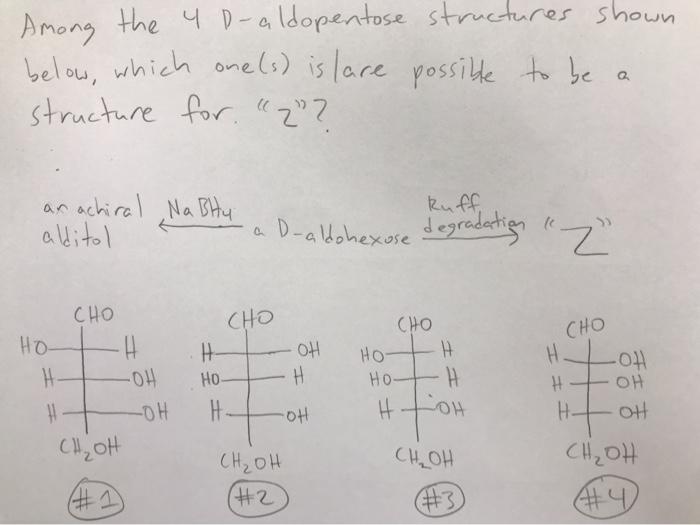 Among the 4 D-aldopentose structures shown
below, which one(s) is/are possible to be a
structure for "Z"?
an achiral alditol NaBH4 a D-aldohexose Ruff degradation "Z"
CHO CHO CHO CHO
HO H H OH HO H H OH
H OH HO H HO H H OH
H OH H OH H OH H OH
CH2OH CH2OH CH2OH CH2OH
#1 #2 #3 #4